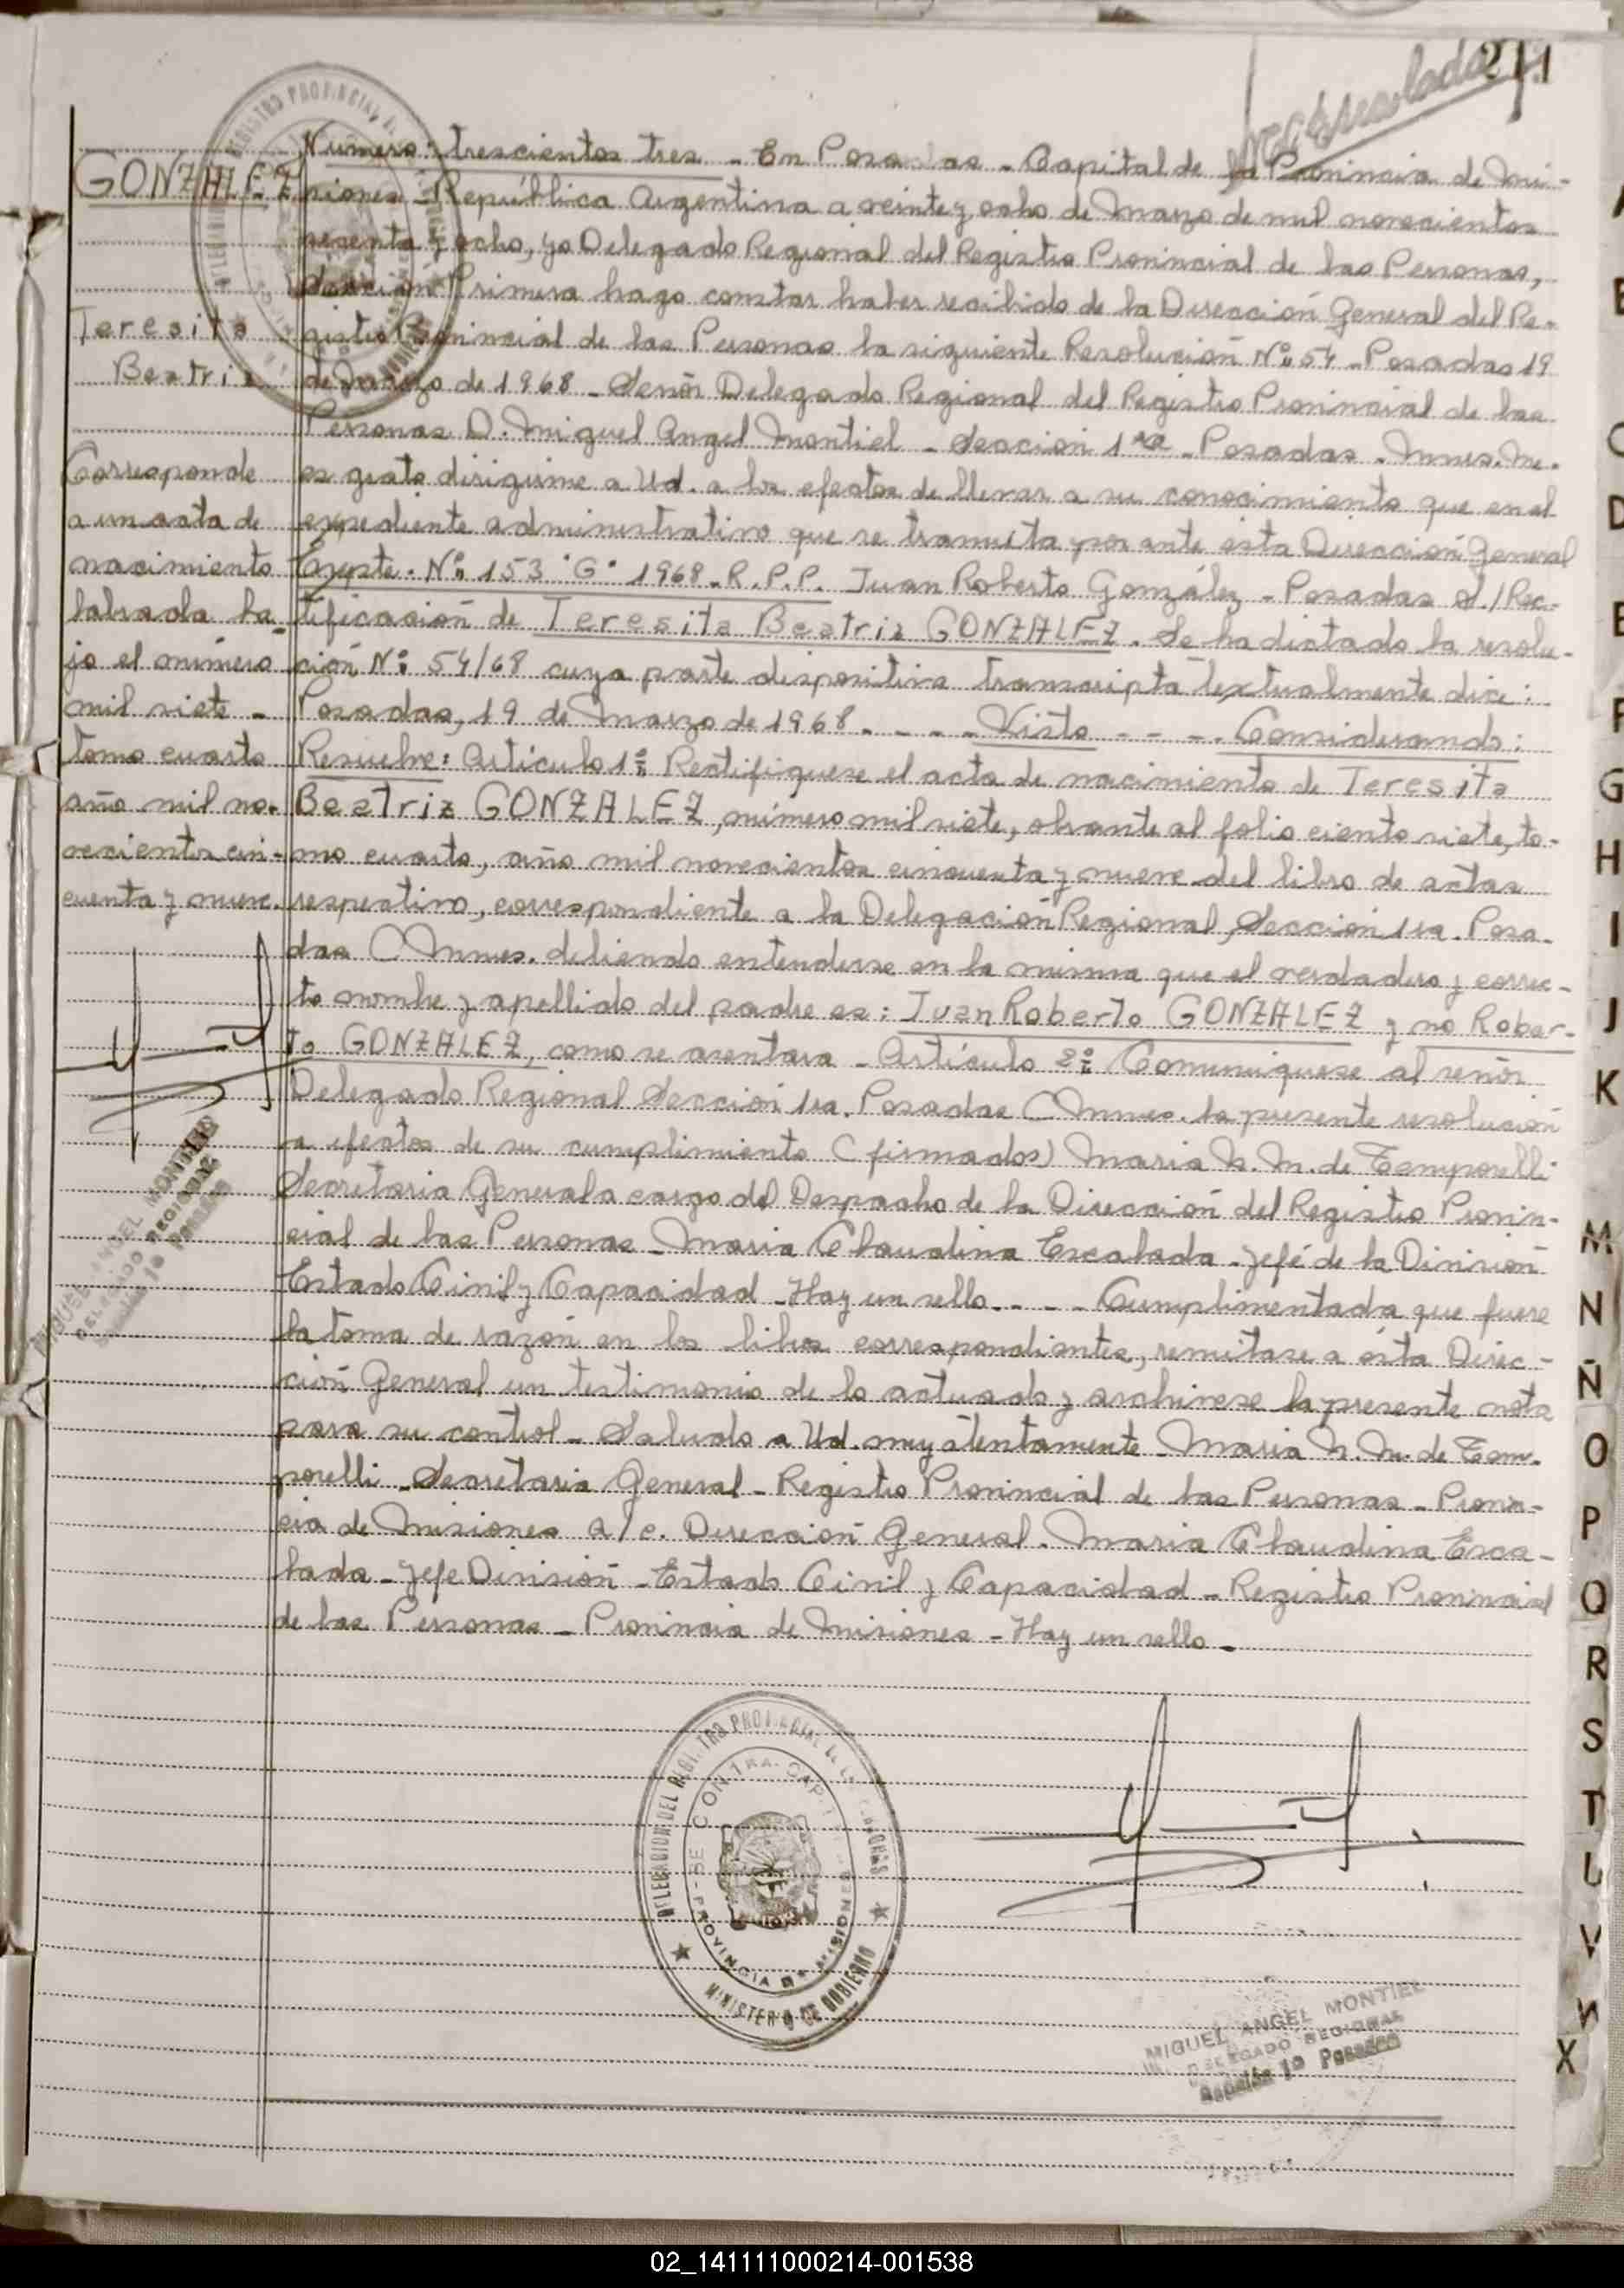 211
GONZALEZ
Teresita
Beatriz
Corresponde
a un acta de
nacimiento
labrada ba-
jo el número
mil siete -
tomo cuarto
año mil no-
vecientos cin-
cuenta y nueve.
MIGUEL ANGEL MONTIEL
DELEGADO REGIONAL
Sección 1º Posadas
Número: trescientos tres - En Posadas - Capital de la Provincia de Mi-
siones - República Argentina a veinte y ocho de Marzo de mil novecientos
sesenta y ocho, yo Delegado Regional del Registro Provincial de las Personas,
Sección Primera hago constar haber recibido de la Dirección General del Re-
gistro Provincial de las Personas la siguiente Resolución Nº 54 - Posadas 19
de Marzo de 1968 - Señor Delegado Regional del Registro Provincial de las
Personas D. Miguel Angel Montiel - Sección 1ra - Posadas - Mnes. Me.
es grato dirigirme a Ud. a los efectos de llevar a su conocimiento que en el
expediente administrativo que se tramita por ante ésta Dirección General
Expte. Nº 153 "G" 1968 - R.P.P. Juan Roberto González - Posadas S/Rec-
tificación de Teresita Beatriz GONZALEZ. Se ha dictado la resolu-
ción Nº 54/68 cuya parte dispositiva transcripta textualmente dice:
Posadas, 19 de Marzo de 1968. - - - Visto - - - Considerando:
Resuelve: Artículo 1º Rectifíquese el acta de nacimiento de Teresita
Beatriz GONZALEZ, número mil siete, obrante al folio ciento siete, to-
mo cuarto, año mil novecientos cincuenta y nueve del libro de actas
respectivo, correspondiente a la Delegación Regional, Sección 1ra. Posa-
das (Mnes. debiendo entenderse en la misma que el verdadero y correc-
to nombre y apellido del padre es: Juan Roberto GONZALEZ y no Rober-
to GONZALEZ, como se asentara - Artículo 2º Comuníquese al señor
Delegado Regional Sección 1ra. Posadas (Mnes. la presente resolución
a efectos de su cumplimiento (firmados) Maria N. M. de Temporelli
Secretaria General a cargo del Despacho de la Dirección del Registro Provin-
cial de las Personas - Maria Claudina Escalada - Jefe de la División
Estado Civil y Capacidad - Hay un sello - - - Cumplimentada que fuere
la toma de razón en los libros correspondientes, remítase a ésta Direc-
ción General un testimonio de lo actuado y archívese la presente nota
para su control - Saludo a Ud. muy atentamente - Maria N. M. de Tem-
porelli - Secretaria General - Registro Provincial de las Personas - Provin-
cia de Misiones a/c. Dirección General. Maria Claudina Esca-
lada - Jefe División - Estado Civil y Capacidad - Registro Provincial
de las Personas - Provincia de Misiones - Hay un sello -
DELEGACION DEL REGISTRO PROVINCIAL DE LAS PERSONAS
PROVINCIA DE MISIONES
MINISTERIO DE GOBIERNO
MIGUEL ANGEL MONTIEL
DELEGADO REGIONAL
Sección 1º Posadas
C
D
E
F
G
H
I
J
K
M
N
Ñ
O
P
Q
R
S
T
U
V
X
02_141111000214-001538